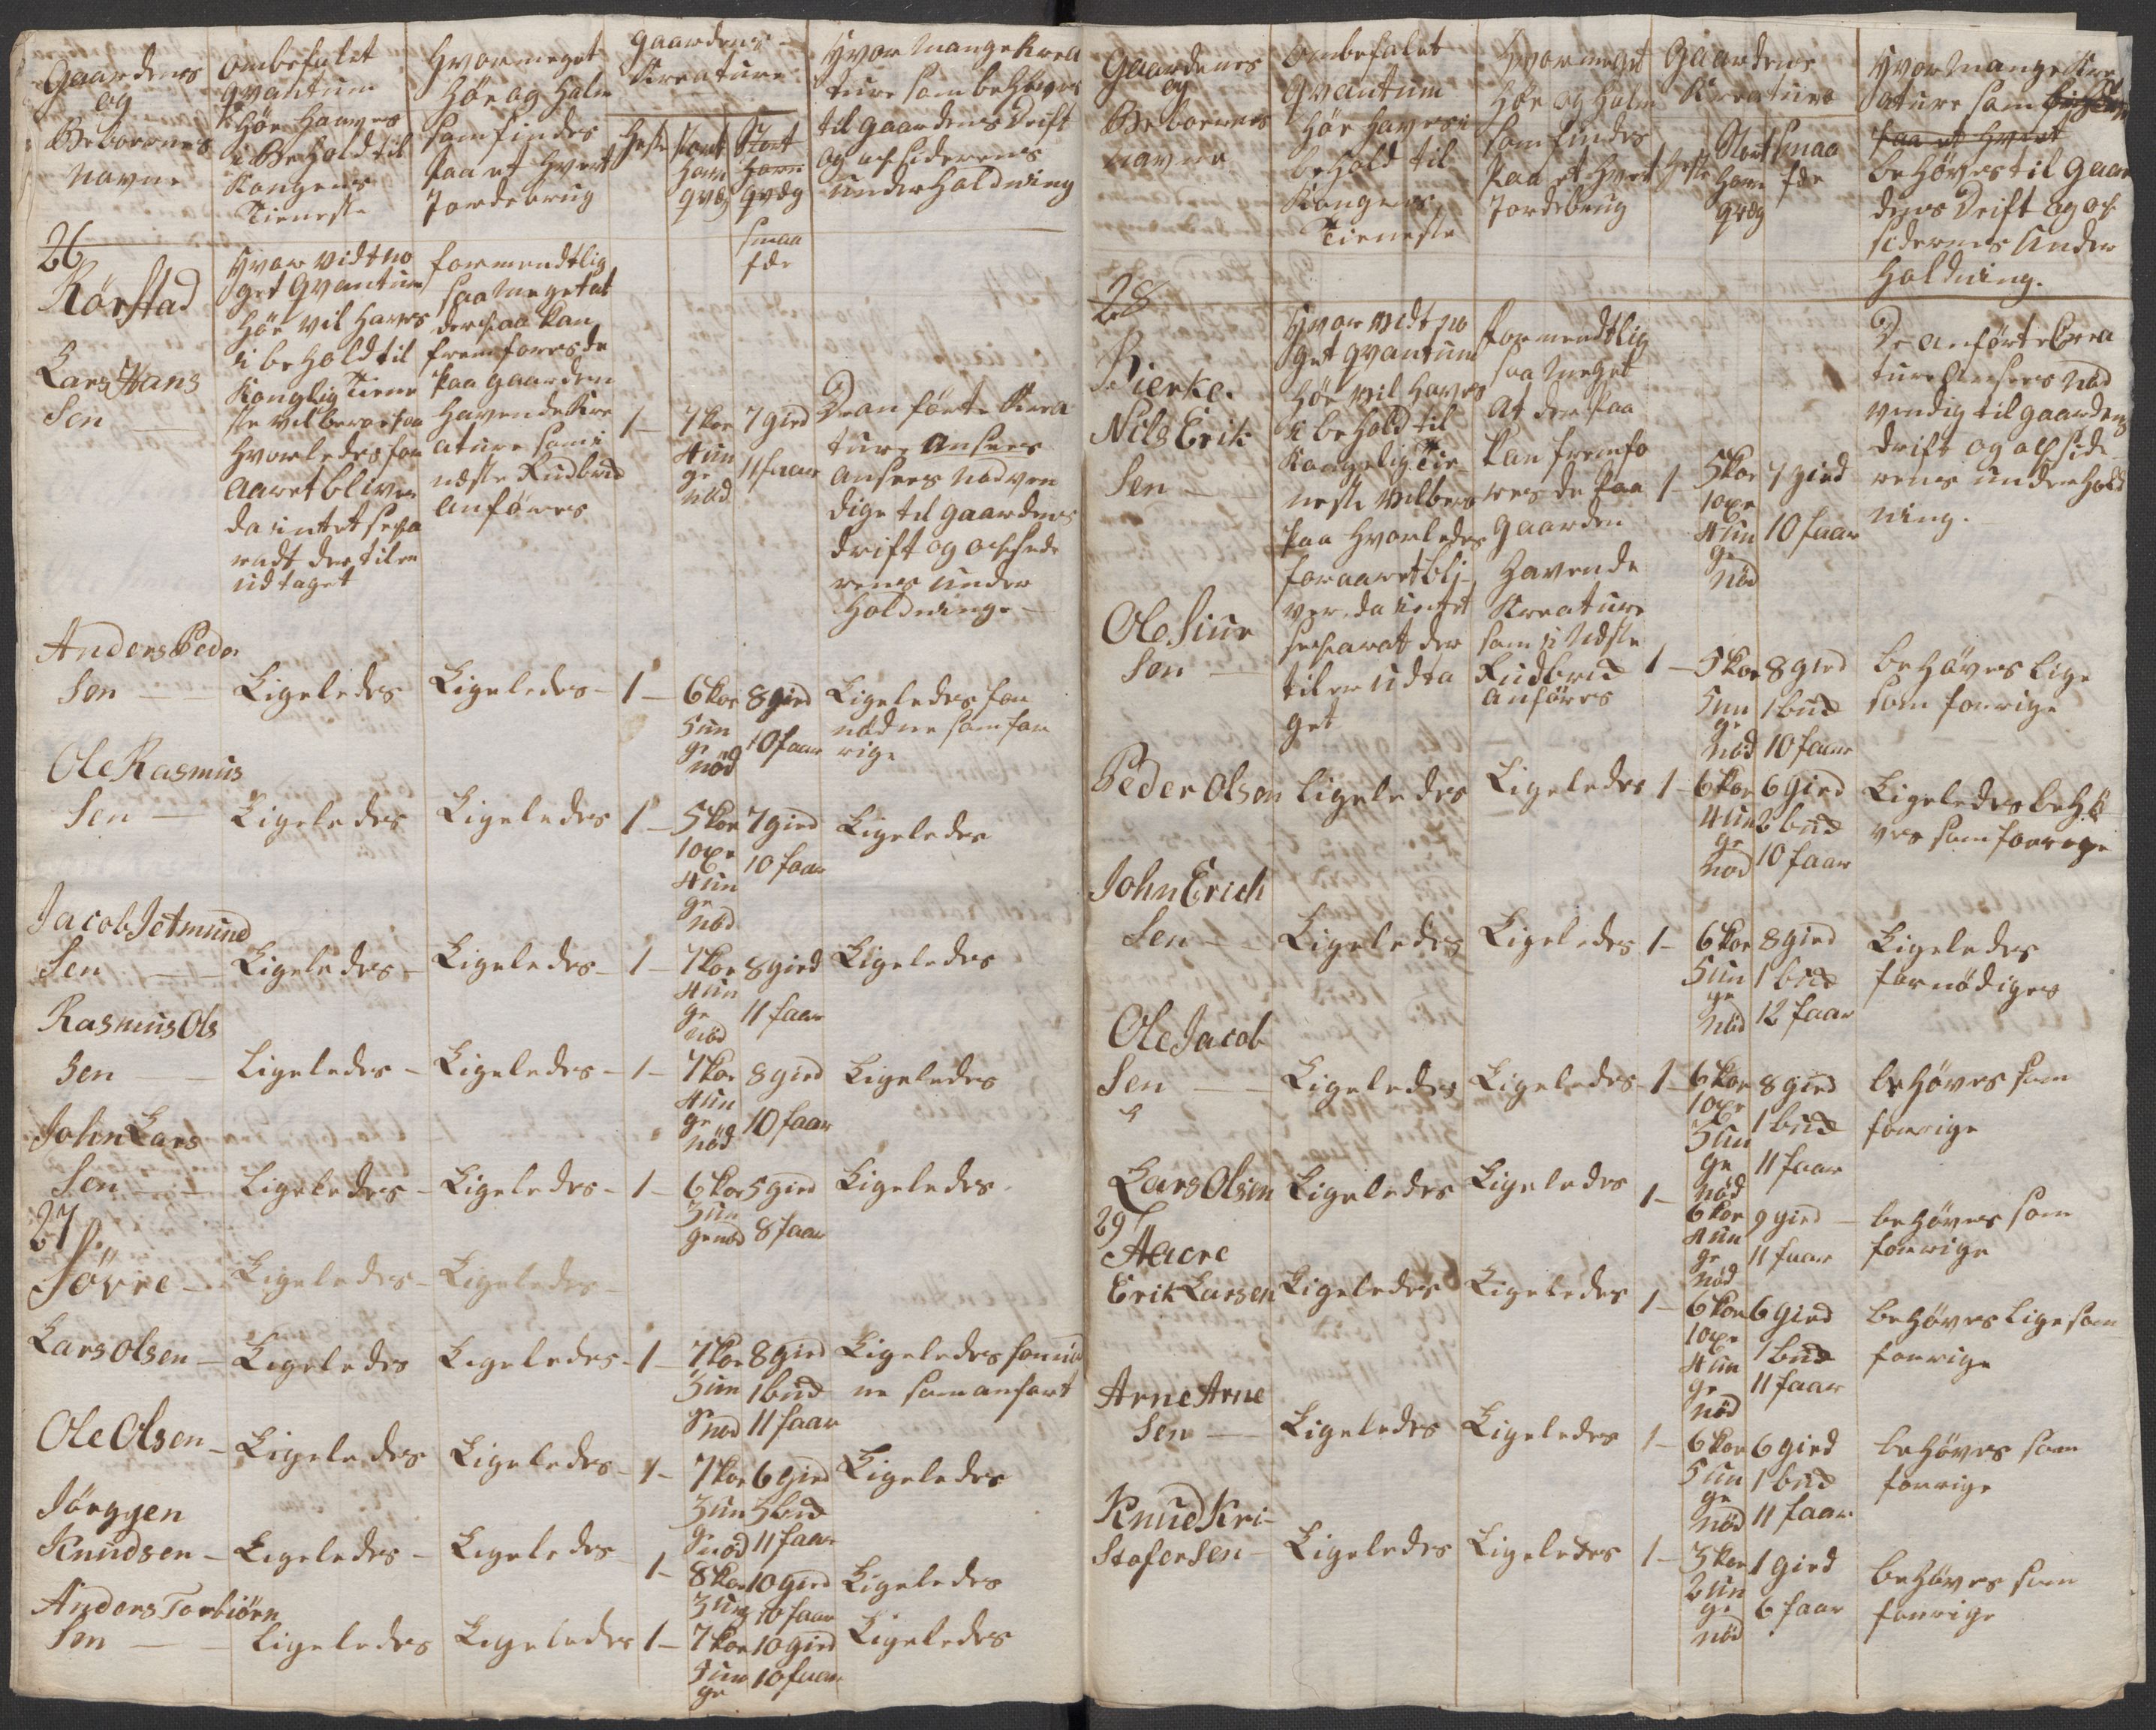 Gaardens
og
Beboernes
Navne
Ombefalet
Qvantum
Høe Haaves
i Behold til
Kongens
Tieneste
Hvormeget
Høe og Halm
som findes
paa et hvert
Jordebrug
Gaardens
Kreature
Heste
stort
Horn
qvæg
Stort
Horn
qvæg
smaa
fæe
Hvor Mange Krea
ture som behøves
til Gaardens Drift
og opsiderens
underholdning
26
Rörstad
Lars Hans
Sen
Hvor vidt no
get Qvantum
Høe vil haves
i behold til
Konglig Tiene
ste vil beroe paa
hvorledes for
aaret bliver
da intet sepa
radt der til er
udtaget
formendtlig
saa meget at
der paa kan
fremfores de
paa gaarden
havende Kre
ature som i
næste Rudbrid
anføres
1 -
7 koe
4 un
ge
nød
7 gied
11 faar
De anførte Krea
ture ansees
ansees nødven
dige til gaardens
drift og opsede
rens under
holdninge -
Anders Peder
Sen -
Ligeledes
Ligeledes -
1 -
6 koe
5 un
ge
nød
8 gied
10 faar
Ligeledes for
nødne som for
rige
Ole Rasmus
Sen -
Ligeledes
Ligeledes
1 -
5 koe
1 oxe
4 un
ge
nød
7 gied
10 faar
Ligeledes
Jacob Jetmund
Sen -
Ligeledes -
Ligeledes -
1 -
7 koe
4 un
ge
nød
8 gied
11 faar
Ligeledes
Rasmus Ols
Sen -
Ligeledes -
Ligeledes -
1 -
7 koe
4 un
ge
nød
8 gied
10 faar
Ligeledes
John Lars
Sen -
Ligeledes -
Ligeledes -
1 -
6 koe
3 un
ge nød
5 gied
8 faar
Ligeledes
27
Söвre -
Ligeledes -
Ligeledes -
Lars Olsen -
Ligeledes
Ligeledes -
1 -
7 koe
3 un
g nød
8 gied
1 bud
11 faar
Ligeledes fornød
ne som anfort
Ole Olsen -
Ligeledes
Ligeledes -
1 -
7 koe
3 un
g nød
6 gied
3 bud
11 faar
Ligeledes
Jörgen
Knudsen -
Ligeledes -
Ligeledes
1 -
8 koe
3 ung
10 gied
10 faar
Ligeledes
Anders Torbiörn
Sen -
Ligeledes
Ligeledes
1 -
7 koe
3 un
ge
10 gied
10 faar
Ligeledes
Gaardenes
og
Beboernes
navne
Ombefalet
Qvantum
Høe haves i
behold til
Kongens
Tieneste
Hvormeget
Høe og Halm
som findes
paa et hvert
Jordebrug
Gaardens
Kreature
Heste
Stort
Horn
qvæg
Smaa
fæe
Hvor Mange Kre
ature som
paa et hvert
behøves til Gaar
dens Drift og op
sidernes Under
holdning.
28
Bierke.
Nils Erik
Sen -
Hvor vidt no
get qvantum
høe vil haves
i behold til
Kongelig Tie
neste vil beroe
paa hvorledes
foraaret bli
ver da intet
separat der
til er udta
get
formendtlig
saa meget
at der paa
kan fremfo
res de paa
Gaarden
havende
Kreature
som i Næste
Rudbrid
anføres
1 -
5 koe
1 oxe
4 un
ge
nød
7 gied
10 faar
De anförte Crea
ture ansees nød
vendig til gaardens
drift og opside
rens underhold
ning.
Ole Siur
Sen -
1 -
5 koe
5 un
ge
nød
8 gied
1 bud
10 faar
behöves lige
som forrige
Peder Olsen
Ligeledes
Ligeledes
1 -
6 koe
4 un
ge
nød
6 gied
2 bud
10 faar
Ligeledes behö
ves som forrige
John Erich
Sen -
Ligeledes
Ligeledes
1 -
6 koe
5 un
ge
nød
8 gied
1 bud
12 faar
Ligeledes
fornødiges
Ole Jacob
Sen -
Ligeledes
Ligeledes -
1 -
6 koe
1 oxe
3 un
ge
nød
8 gied
1 bud
11 faar
behøves som
forrige
Lars Olsen
Ligeledes
Ligeledes
1 -
6 koe
4 un
ge
nød
9 gied -
11 faar
behøves som
forrige
29
Aacre
Erik Larsen
Ligeledes
Ligeledes
1 -
6 koe
1 oxe
4 un
ge
nød
6 gied
1 bud
11 faar
behøves lige som
forrige
Arne Arne
Sen -
Ligeledes
Ligeledes
1 -
6 koe
5 un
ge
nød
6 gied
1 bud
11 faar
behøves som
forrige
Knud Kri-
Stofersen -
Ligeledes
Ligeledes
1 -
3 koe
2 un
ge
nød
1 gied
6 faar
behøves som
forrige